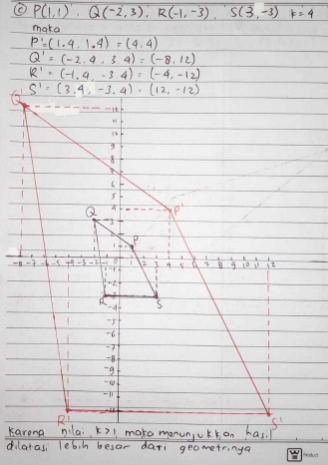 c P(1,1) . Q(-2,3), R(-1,-3), S(3,-3) k=4
maka
P'=(1.4, 1.4) = (4,4)
Q' = (-2.4, 3.4) = (-8,12)
R' = (-1.4, -3.4) = (-4,-12)
S' = (3.4, -3.4) = (12,-12)
Q'
P'
Q
P
R
S
R'
S'
Karena nilai k>1 maka menunjukkan hasil
dilatasi lebih besar dari geometrinya